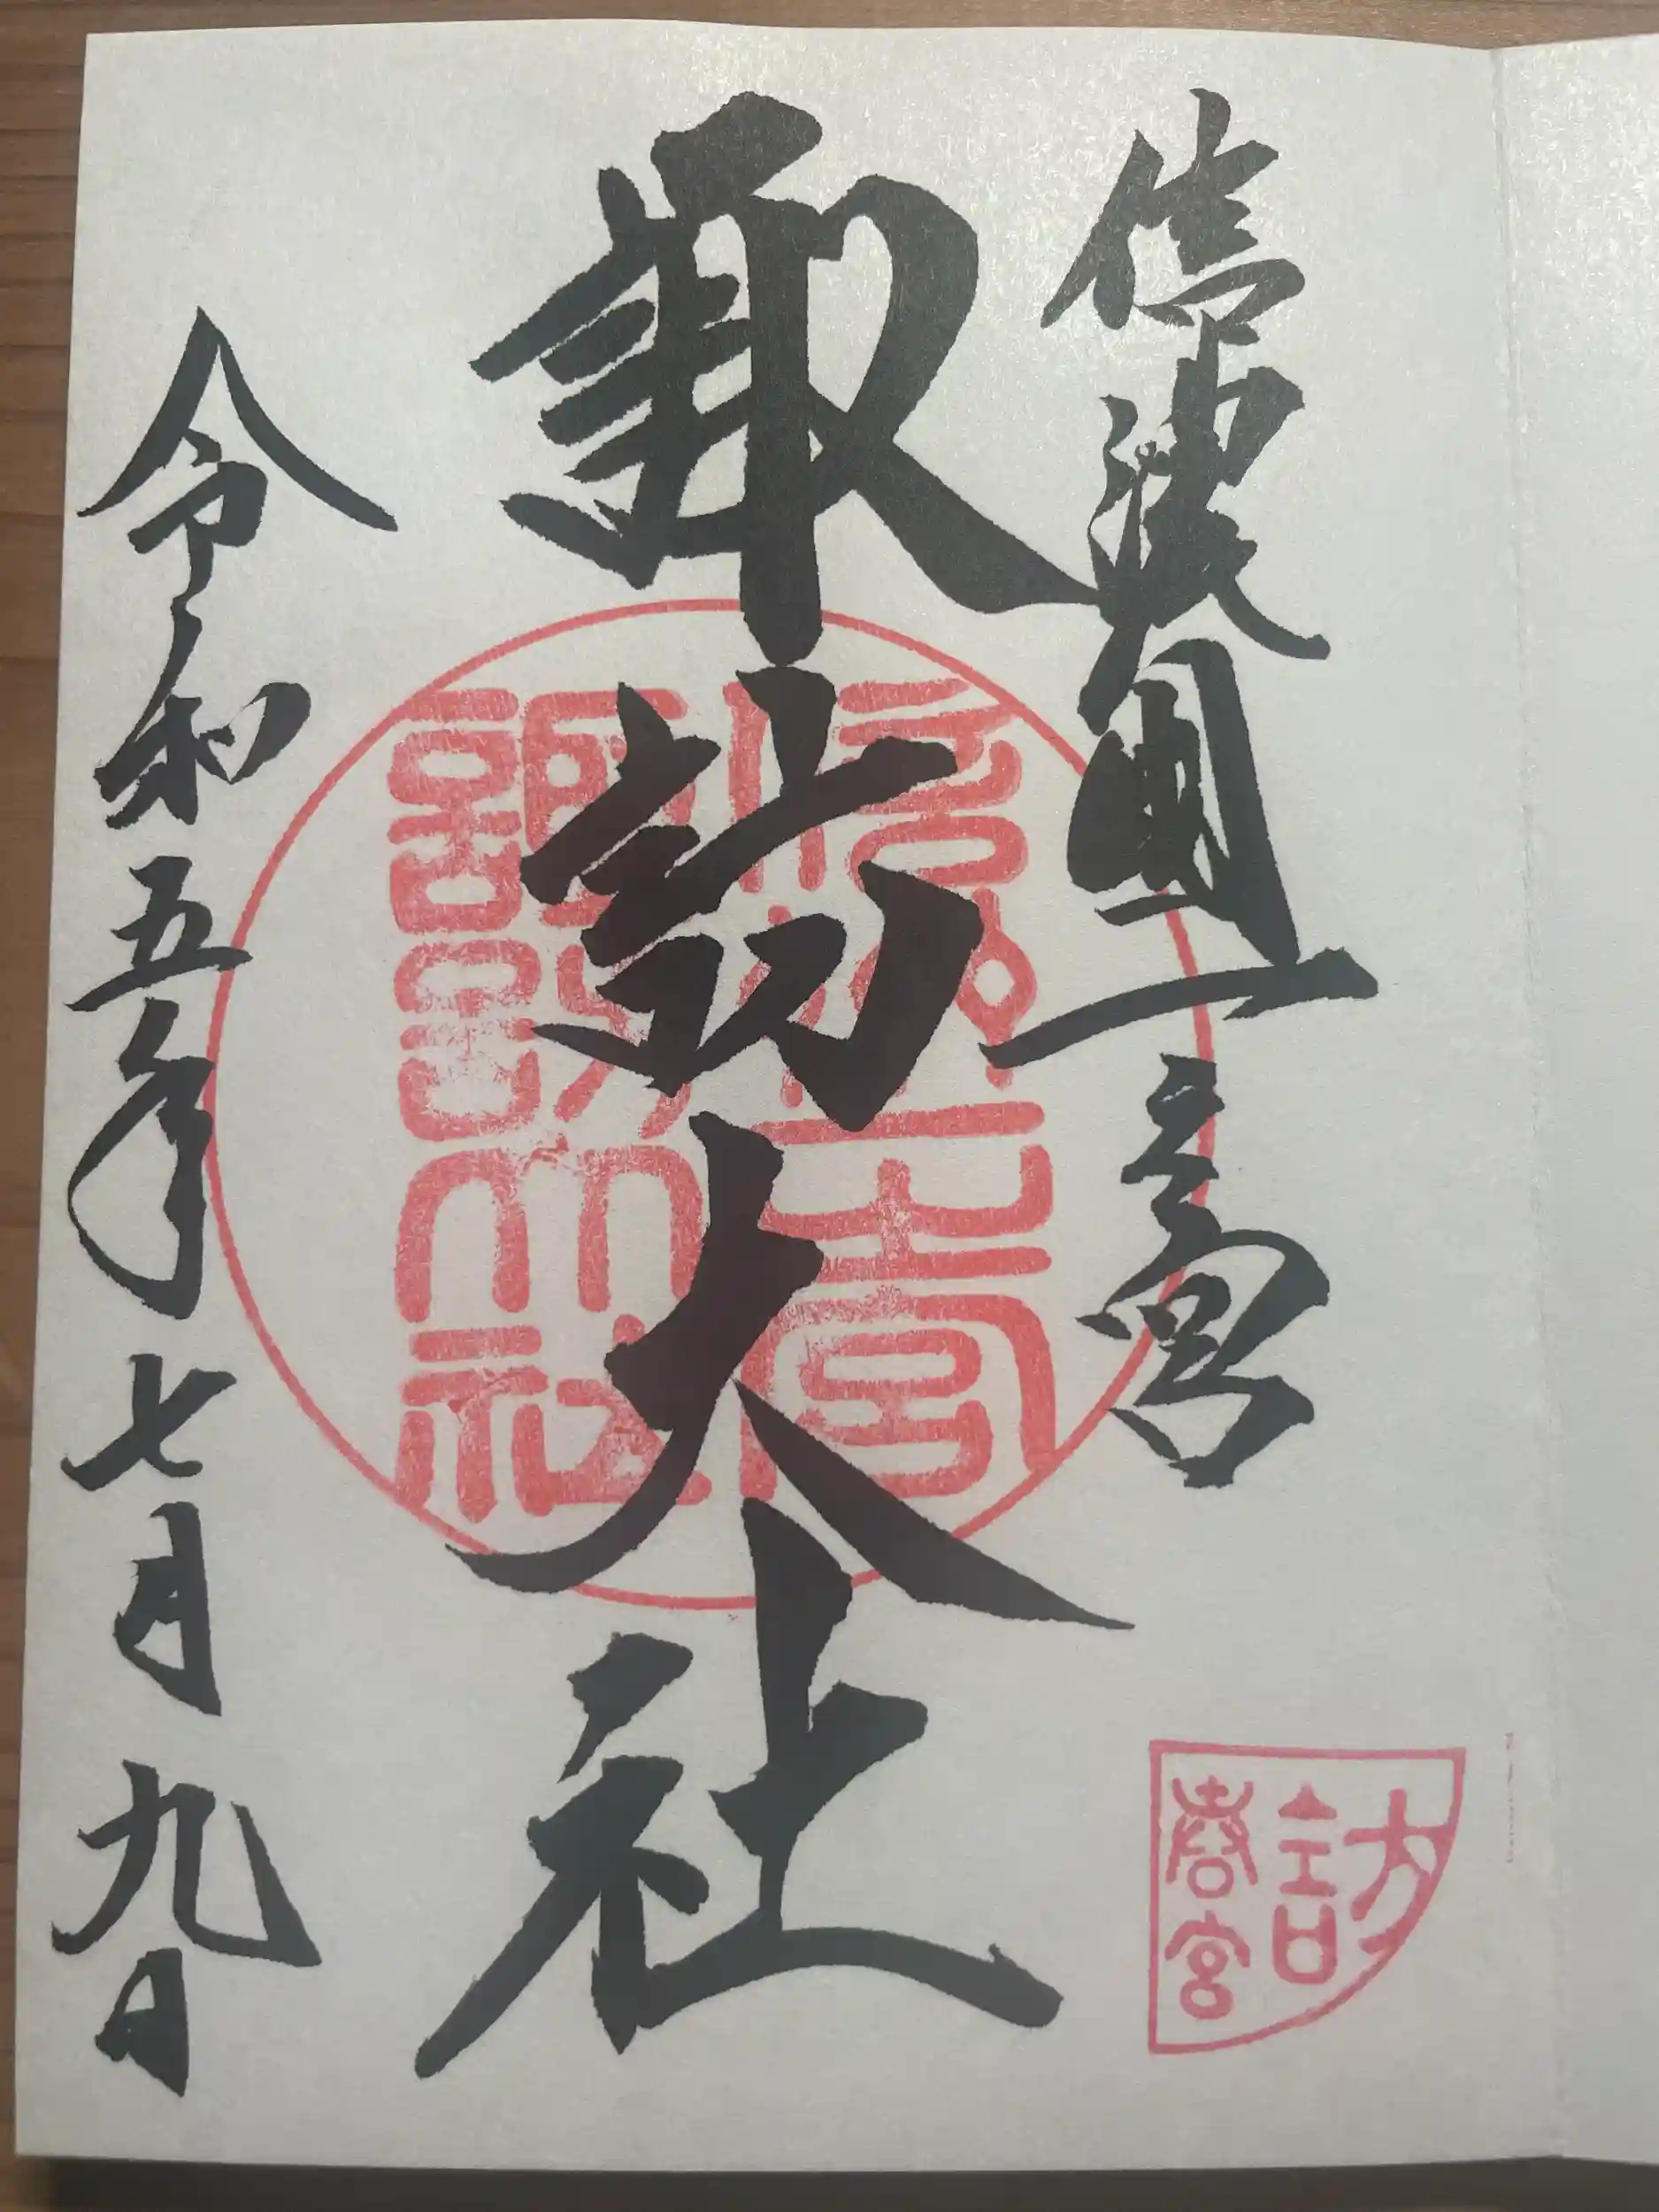 信濃國一之宮
諏訪大社
令和五年七月九日
信濃国一之宮
諏訪大社
訪
春宮